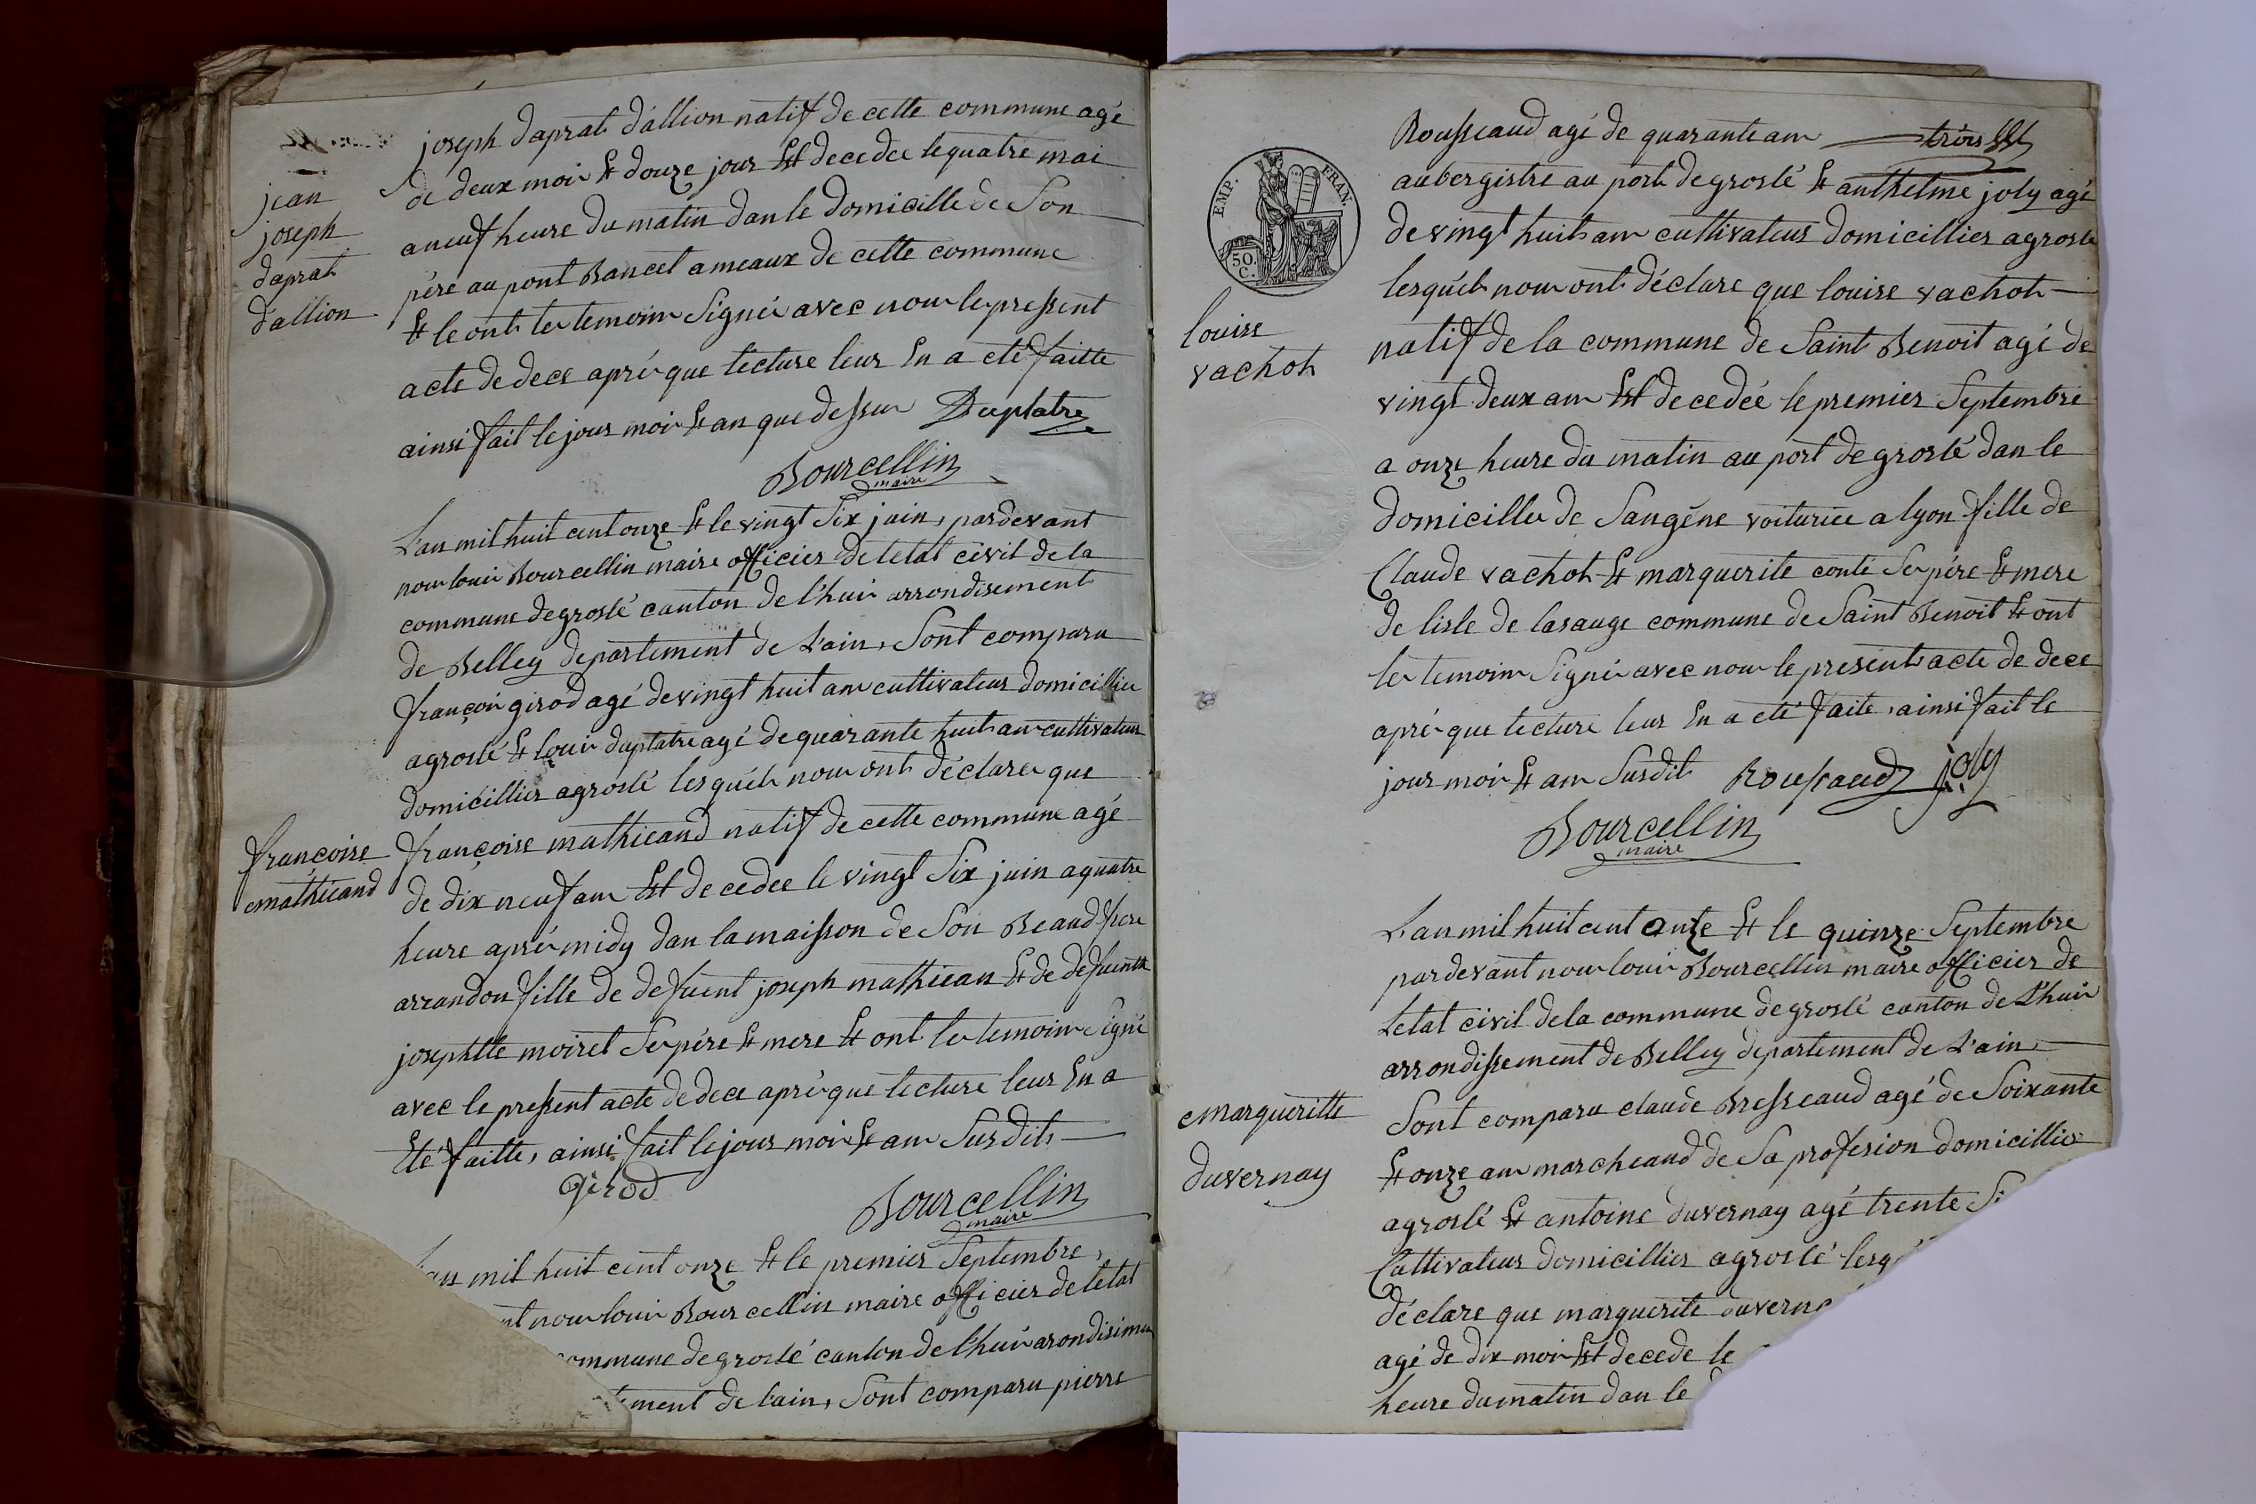 jean
joseph
daprat
dallion
joseph daprat dallion natif de cette commune agé
de deux moir & douze jour Est decedee le quatre mai
a neuf heure du matin dan le domicille de Son
pére au pont Bancet a meaux de cette commune
& le ont ler temoin Signér avec nour le pressent
acte de dece aprér que lecture leur En a eté faitte
ainsi fait le jour moir & an que dessur Duplatre
Bourcellin
maire
L'an mil huit cent onze & le vingt Six juin, par devant
nour louir Bourcellin maire officier de letat civil de la
commune de groslé canton de l'huir arrondisement
de Belley departement de L'ain, Sont comparu
françoir girod agé de vingt huit anr cultivateur domicillier
a groslé & louir duplatre agé de quarante huit anr cultivateur
domicillier a groslé lesquéls nour ont déclarer que
françoise
mathieand
françoise mathieand natif de cette commune agé
de dix neuf anr Est decedee le vingt Six juin a quatre
heure aprér midy dan la maisson de Son Beaud frere
arrandon fille de defuent joseph mathieau & de defuente
josephtte moiret Ser pére & mere & ont ler temoin Signé
avec le pressent acte de dece aprér que lecture leur En a
Eté faitte, ainsi fait le jour moir & anr Susdit
Girod
Bourcellin
maire
an mil huit cent onze & le premier Septembre,
nt nour louir Bourcellin maire officier de letat
commune de groslé canton de l'huir arondisimen
tement de l'ain, Sont comparu pierre
EMP. FRAN.
50.
C.
Rousseaud agé de quarante anr trois
aubergistre au port de groslé & anthelme joly agé
de vingt huit anr cultivateur domicillier a grosle
lesquéls nour ont déclare que louise vachot
louise
vachot
natif de la commune de Saint Benoit agé de
vingt deux anr Est decedée le premier Septembre
a onze heure du matin au port de groslé dan le
domicille de Sangéne voiturier a lyon fille de
Claude vachot & marguerite conté Ser pére & mere
de lisle de lasauge commune de Saint Benoit & ont
ler temoin Signér avec nour le present acte de dece
aprér que lecture leur En a eté faite, ainsi fait le
jour moir & anr Susdit Roussaud joly
Bourcellin
maire
L'an mil huit cent onze & le quinze Septembre
par devant nour louir Bourcellin maire officier de
Letat civil de la commune de groslé canton de L'huir
arrondissement de Belley departement de L'ain
margueritte
duvernay
Sont comparu claude Bresseaud agé de Soixante
& onze anr marcheand de Sa profesion domicillier
a groslé & antoine duvernay agé trente Si
Cultivateur domicillier a groslé lesq
déclare que marguerite duverna
agé de dix moir Est decede le
heure du matin dan le d